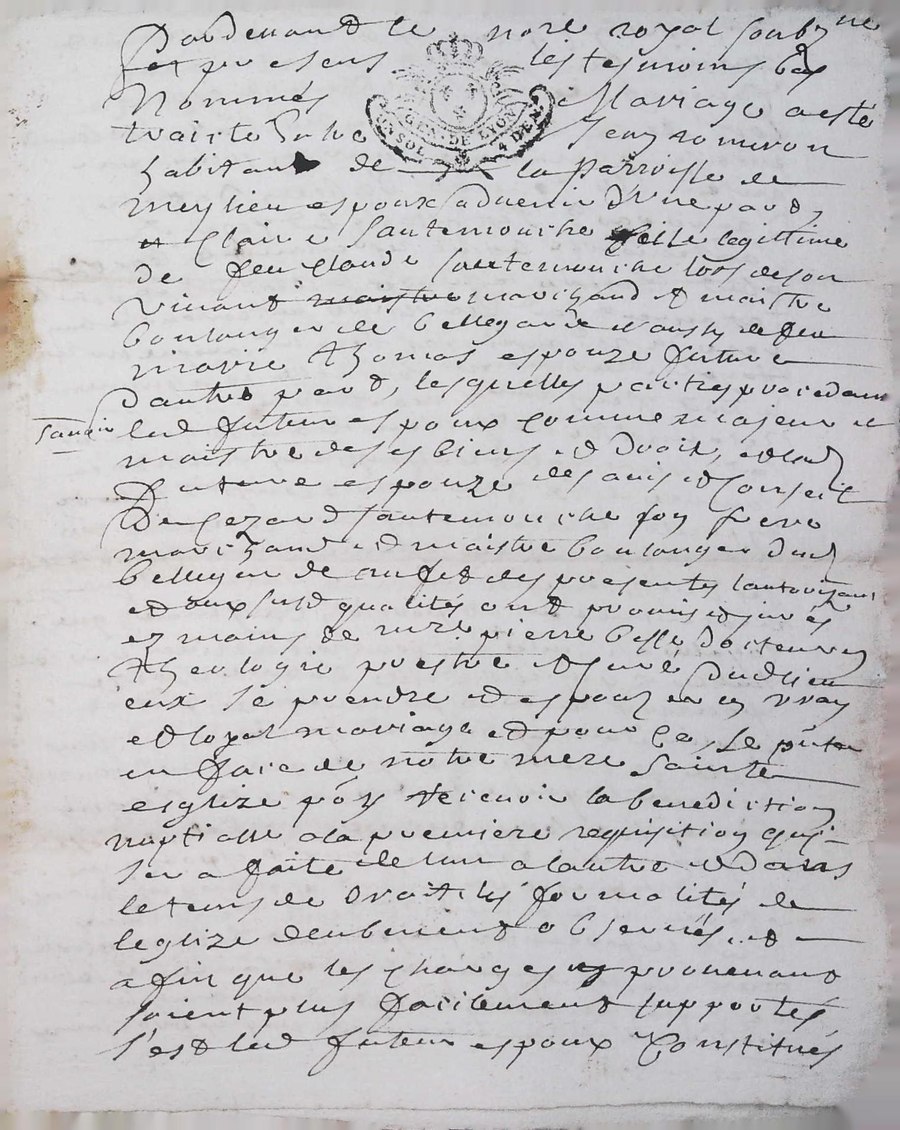 Pardevant le nore royal soubz.ne
et presens les tesmoins bas
Nommés Mariage a esté
traité Entre Jean romeron
GEN. DE LYON
UN SOL 4 DEN.
habitant de la parroisse de
meylieu espoux advenir d'une part,
et Claire Sautemouche fille legittime
de feu Claude Sautemouche lors de son
vivant maistre marchand et maistre
boulanger de bellegarde et aussy de feu
marie thomas espouze future
dautre part, lesquelles parties procedant
Savoir led futur espoux comme majeur et
maistre de ses biens et droits, et lad
future espouze des avis et Conseil
de Sautemouche son frere
marchand et maistre boulanger dud
bellegarde aux fet des presentes lautorizant
et aux susd qualités ont promis et jurés
ez mains de mre pierre belle docteur en
theologie prestre et curé dud lieu
eux se prendre et espouzer en vray
et loyal mariage et pour ce, se pnter
en face de notre mere Sainte
esglize p'ÿ recevoir la benediction
nuptialle a la premiere requisition qui
sera faite de lun a lautre et dans
le tems de droit les formalités de
leglize deubement observés, et
afin que les charges en provenant
soient plus facilement supportés
s'est led futur espoux Constitués